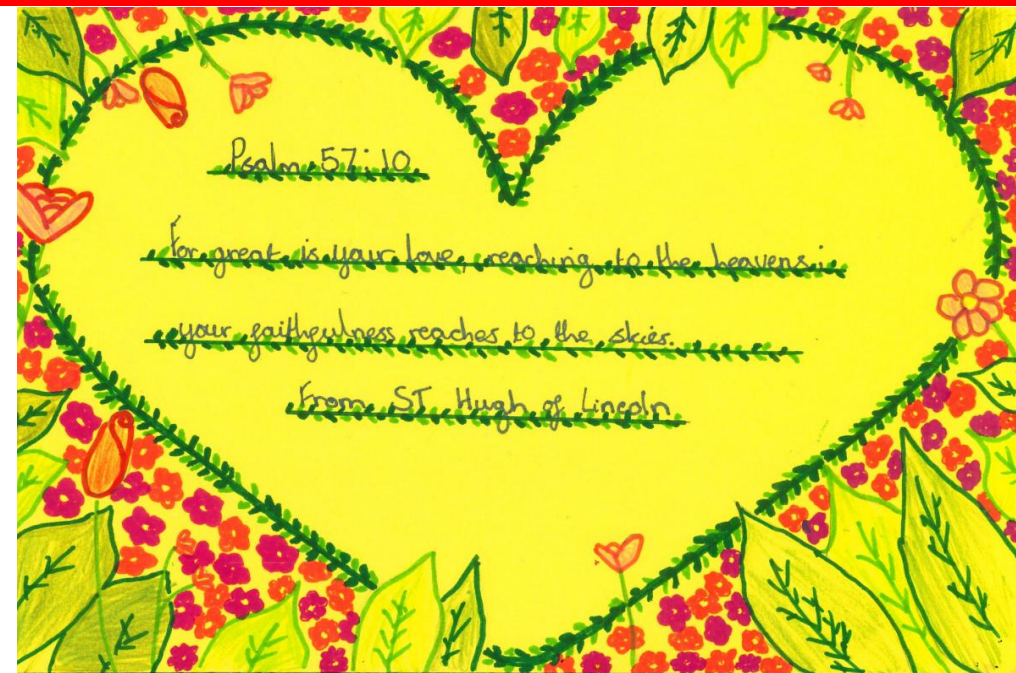 Psalm 57:10
For great is your love, reaching to the heavens;
your faithfulness reaches to the skies.
From ST Hugh of Lincoln